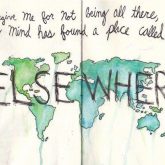 give me for not being all there,
mind has found a place called
ELSEWHER